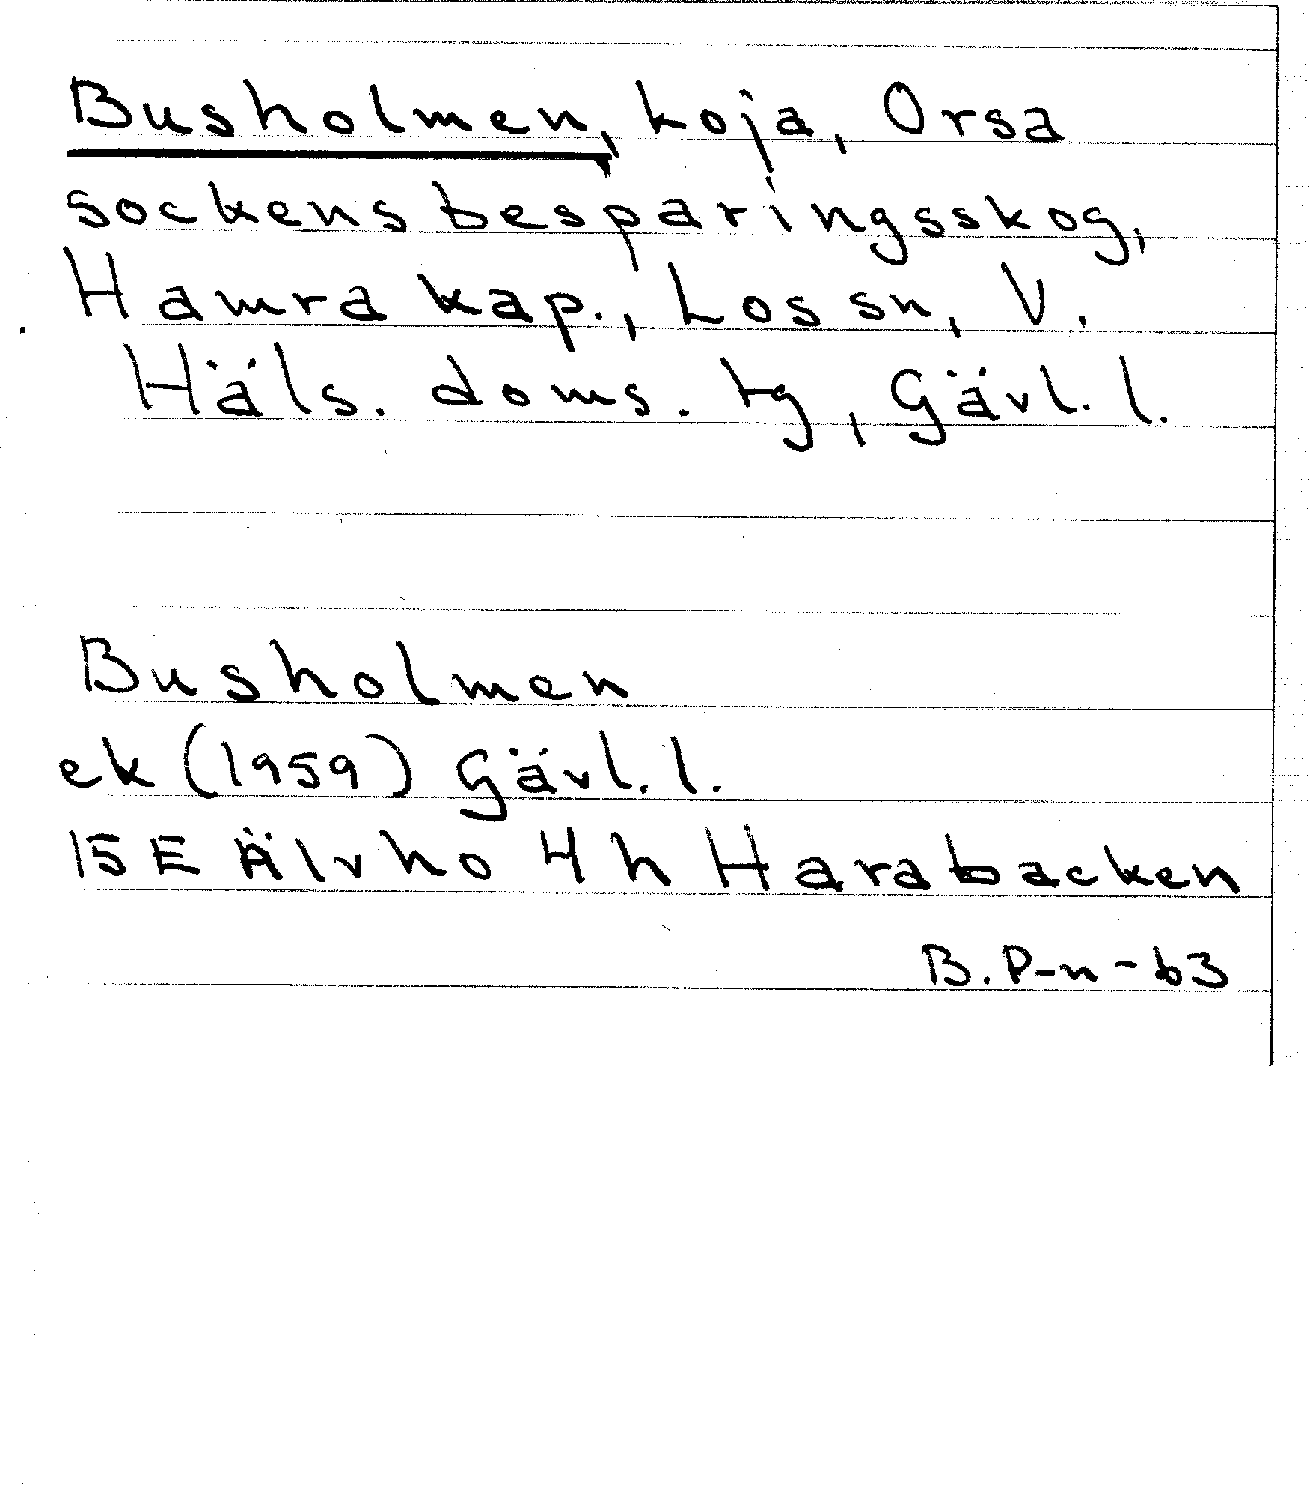 Busholmen, koja, Orsa
sockens besparingsskog,
Hamra kap., Los sn, V.
Häls. doms. tg, Gävl. l.
Busholmen
ek (1959) Gävl. l.
15 E Älvho 4 h Harabacken
B. P-n-63